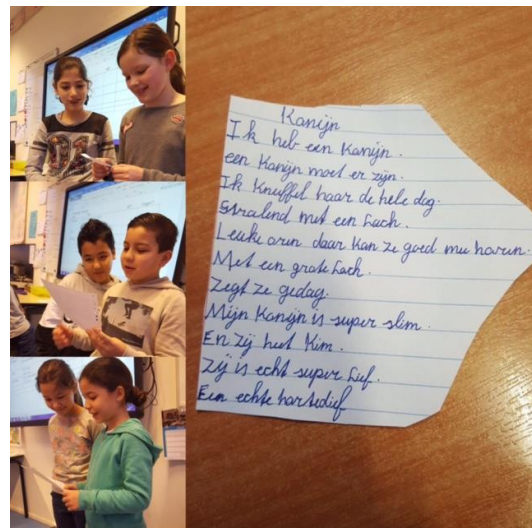 Konijn
Ik heb een Konijn.
een Konijn moet er zijn.
Ik Knuffel haar de hele dag.
Stralend met een Lach.
Leuke oren daar kan ze goed mee horen.
Met een grote Lach.
Zegt ze gedag.
Mijn Konijn is super slim.
En zij heet Kim.
Zij is echt super Lief.
Een echte hartedief